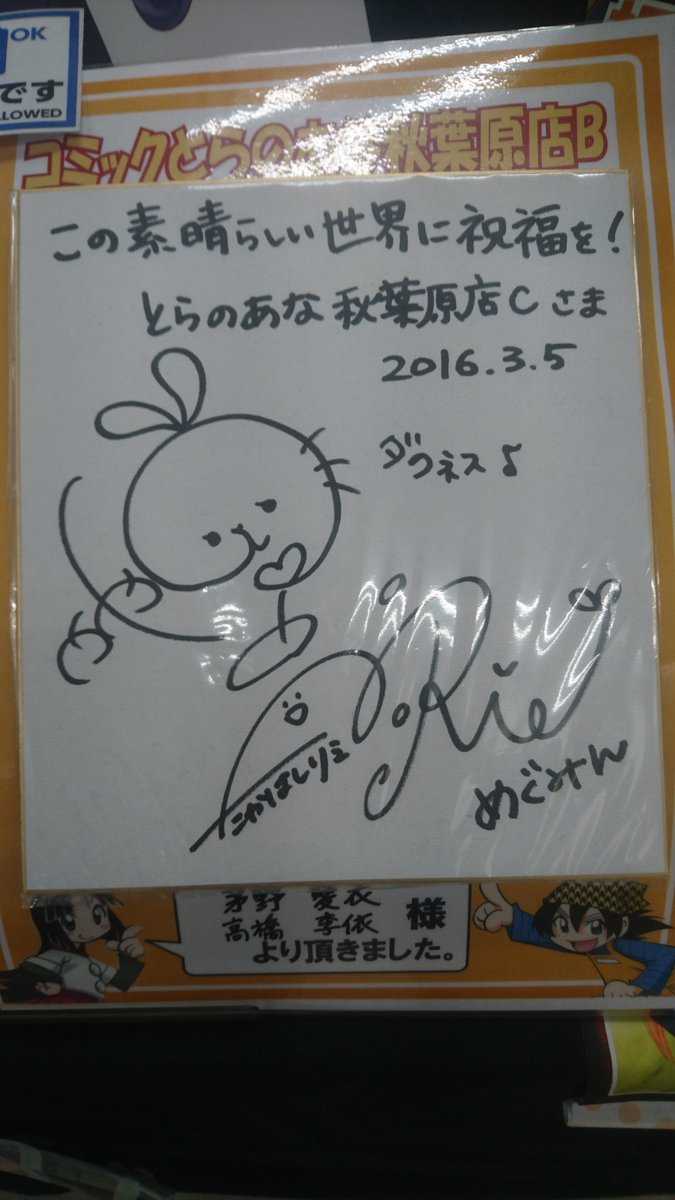 OK
です
LLOWED
コミックとらのあな秋葉原店B
この素晴らしい世界に祝福を!
とらのあな 秋葉原店Cさま
2016.3.5
ダクネス♪
Rie
たかはしりえ
めぐみん
茅野 愛衣
高橋 李依 様
より頂きました。